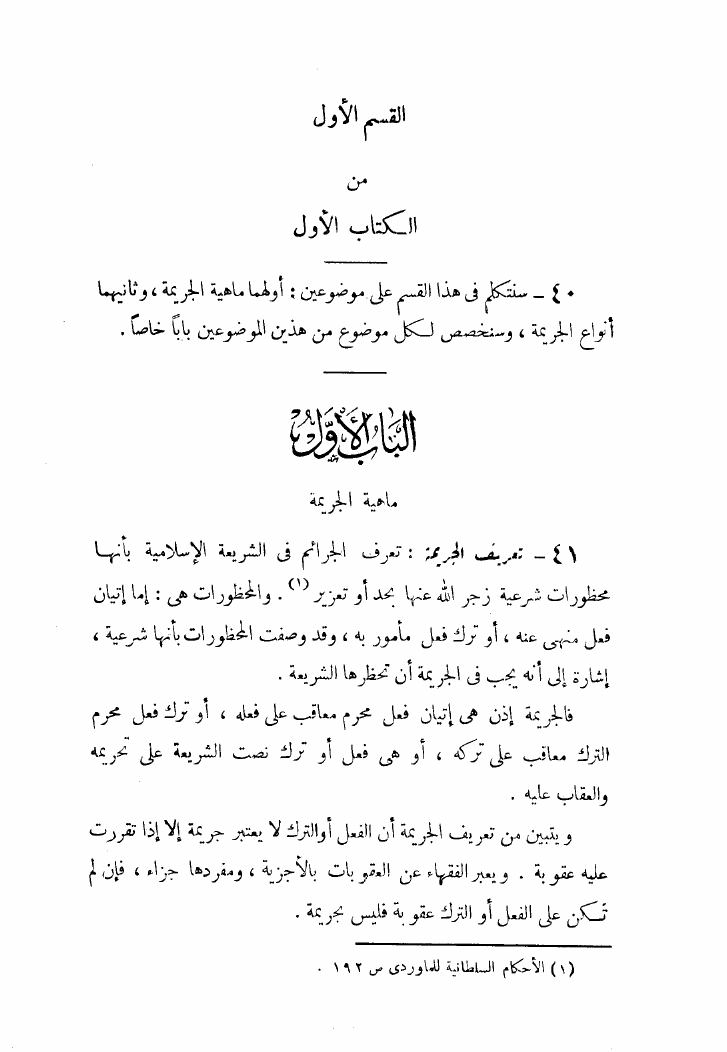 القسم الأول
من
الكتاب الأول
٤٠ – سنتكلم فى هذا القسم على موضوعين : أولهما ماهية الجريمة ، وثانيهما
أنواع الجريمة ، وسنخصص لكل موضوع من هذين الموضوعين باباً خاصاً .
الباب الأول
ماهية الجريمة
٤١ – تعريف الجريمة : تعرف الجرائم فى الشريعة الإسلامية بأنها
محظورات شرعية زجر الله عنها بحد أو تعزير (١) . والمحظورات هى : إما إتيان
فعل منهى عنه ، أو ترك فعل مأمور به ، وقد وصفت المحظورات بأنها شرعية ،
إشارة إلى أنه يجب فى الجريمة أن تحظرها الشريعة .
فالجريمة إذن هى إتيان فعل محرم معاقب على فعله ، أو ترك فعل محرم
الترك معاقب على تركه ، أو هى فعل أو ترك نصت الشريعة على تحريمه
والعقاب عليه .
ويتبين من تعريف الجريمة أن الفعل أو الترك لا يعتبر جريمة إلا إذا تقررت
عليه عقوبة . ويعبر الفقهاء عن العقوبات بالأجزية ، ومفردها جزاء ، فإن لم
تكن على الفعل أو الترك عقوبة فليس بجريمة .
(١) الأحكام السلطانية للماوردى ص ١٩٢ .